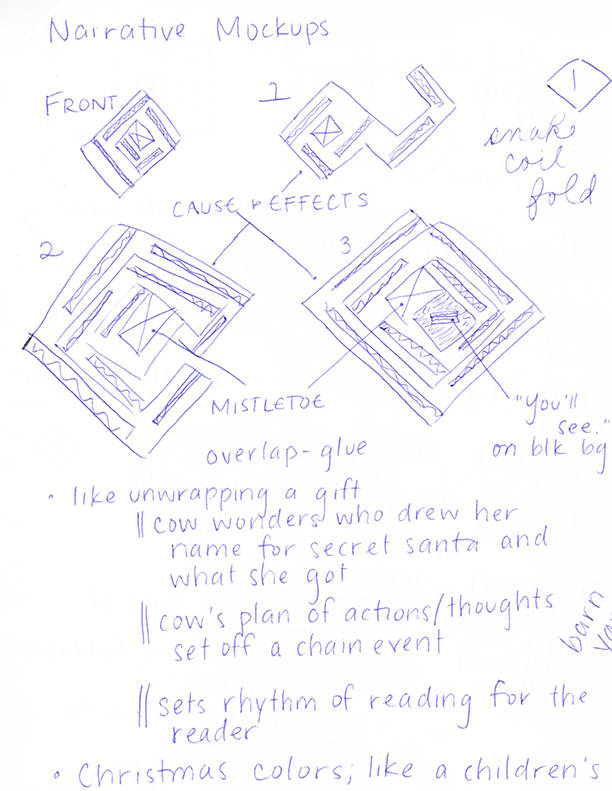 Narrative Mockups
FRONT
1
1
snake
coil
fold
CAUSE & EFFECTS
2
3
MISTLETOE
"You'll
see."
on blk bg
overlap-glue
• like unwrapping a gift
|| cow wonders who drew her
name for secret santa and
what she got
|| cow's plan of actions/thoughts
set off a chain event
barn
|| sets rhythm of reading for the
reader
• Christmas colors; like a children's